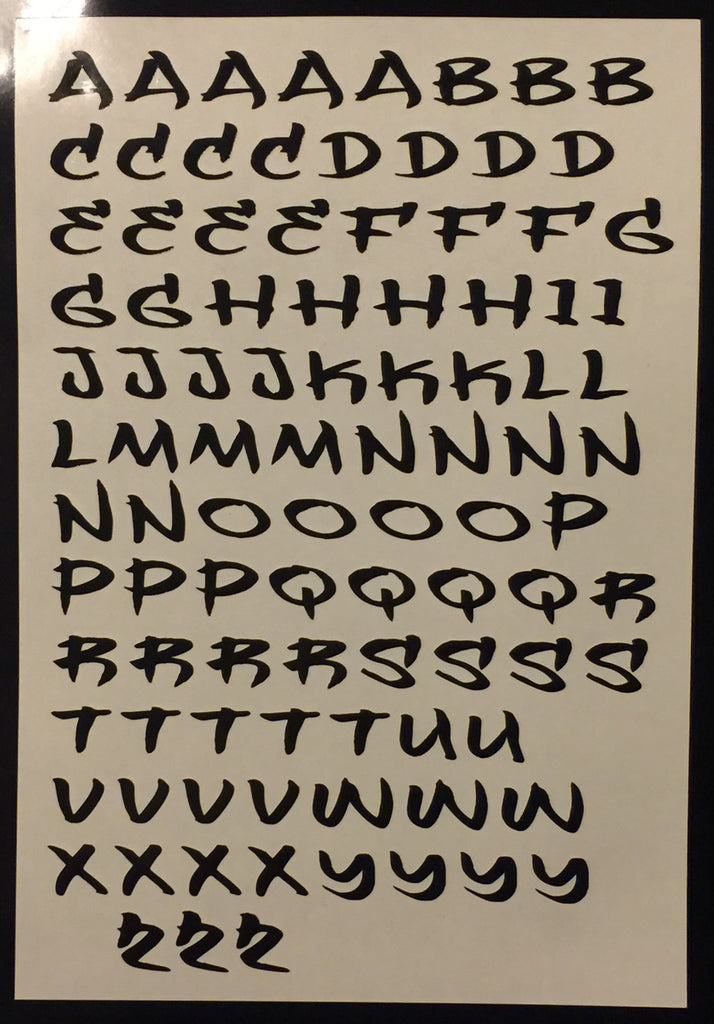 AAAAABBB
CCCCDDDD
EEEEFFFG
GGHHHHII
JJJJKKKLL
LMMMNNNN
NNOOOOP
PPPQQQQR
RRRRSSSS
TTTTTUU
VVVVWWW
XXXXYYYY
ZZZ